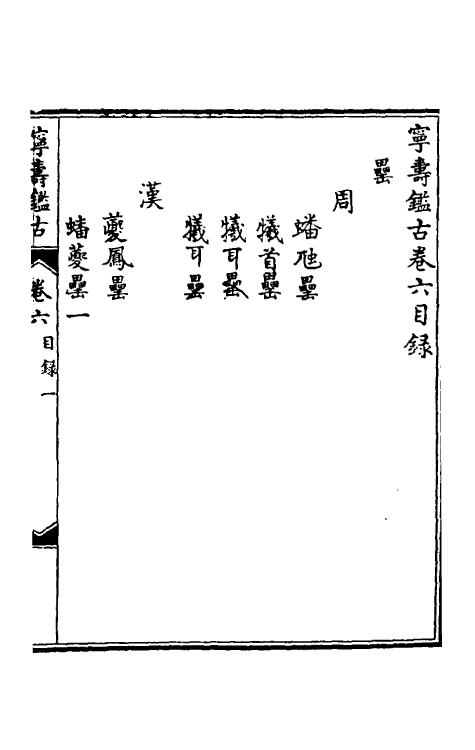 寧壽鑑古卷六目録
罍
周
蟠虬罍
犧首罍
犧耳罍
犧耳罍
漢
夔鳳罍
蟠夔罍一
寧壽鑑古
卷六
目録
一